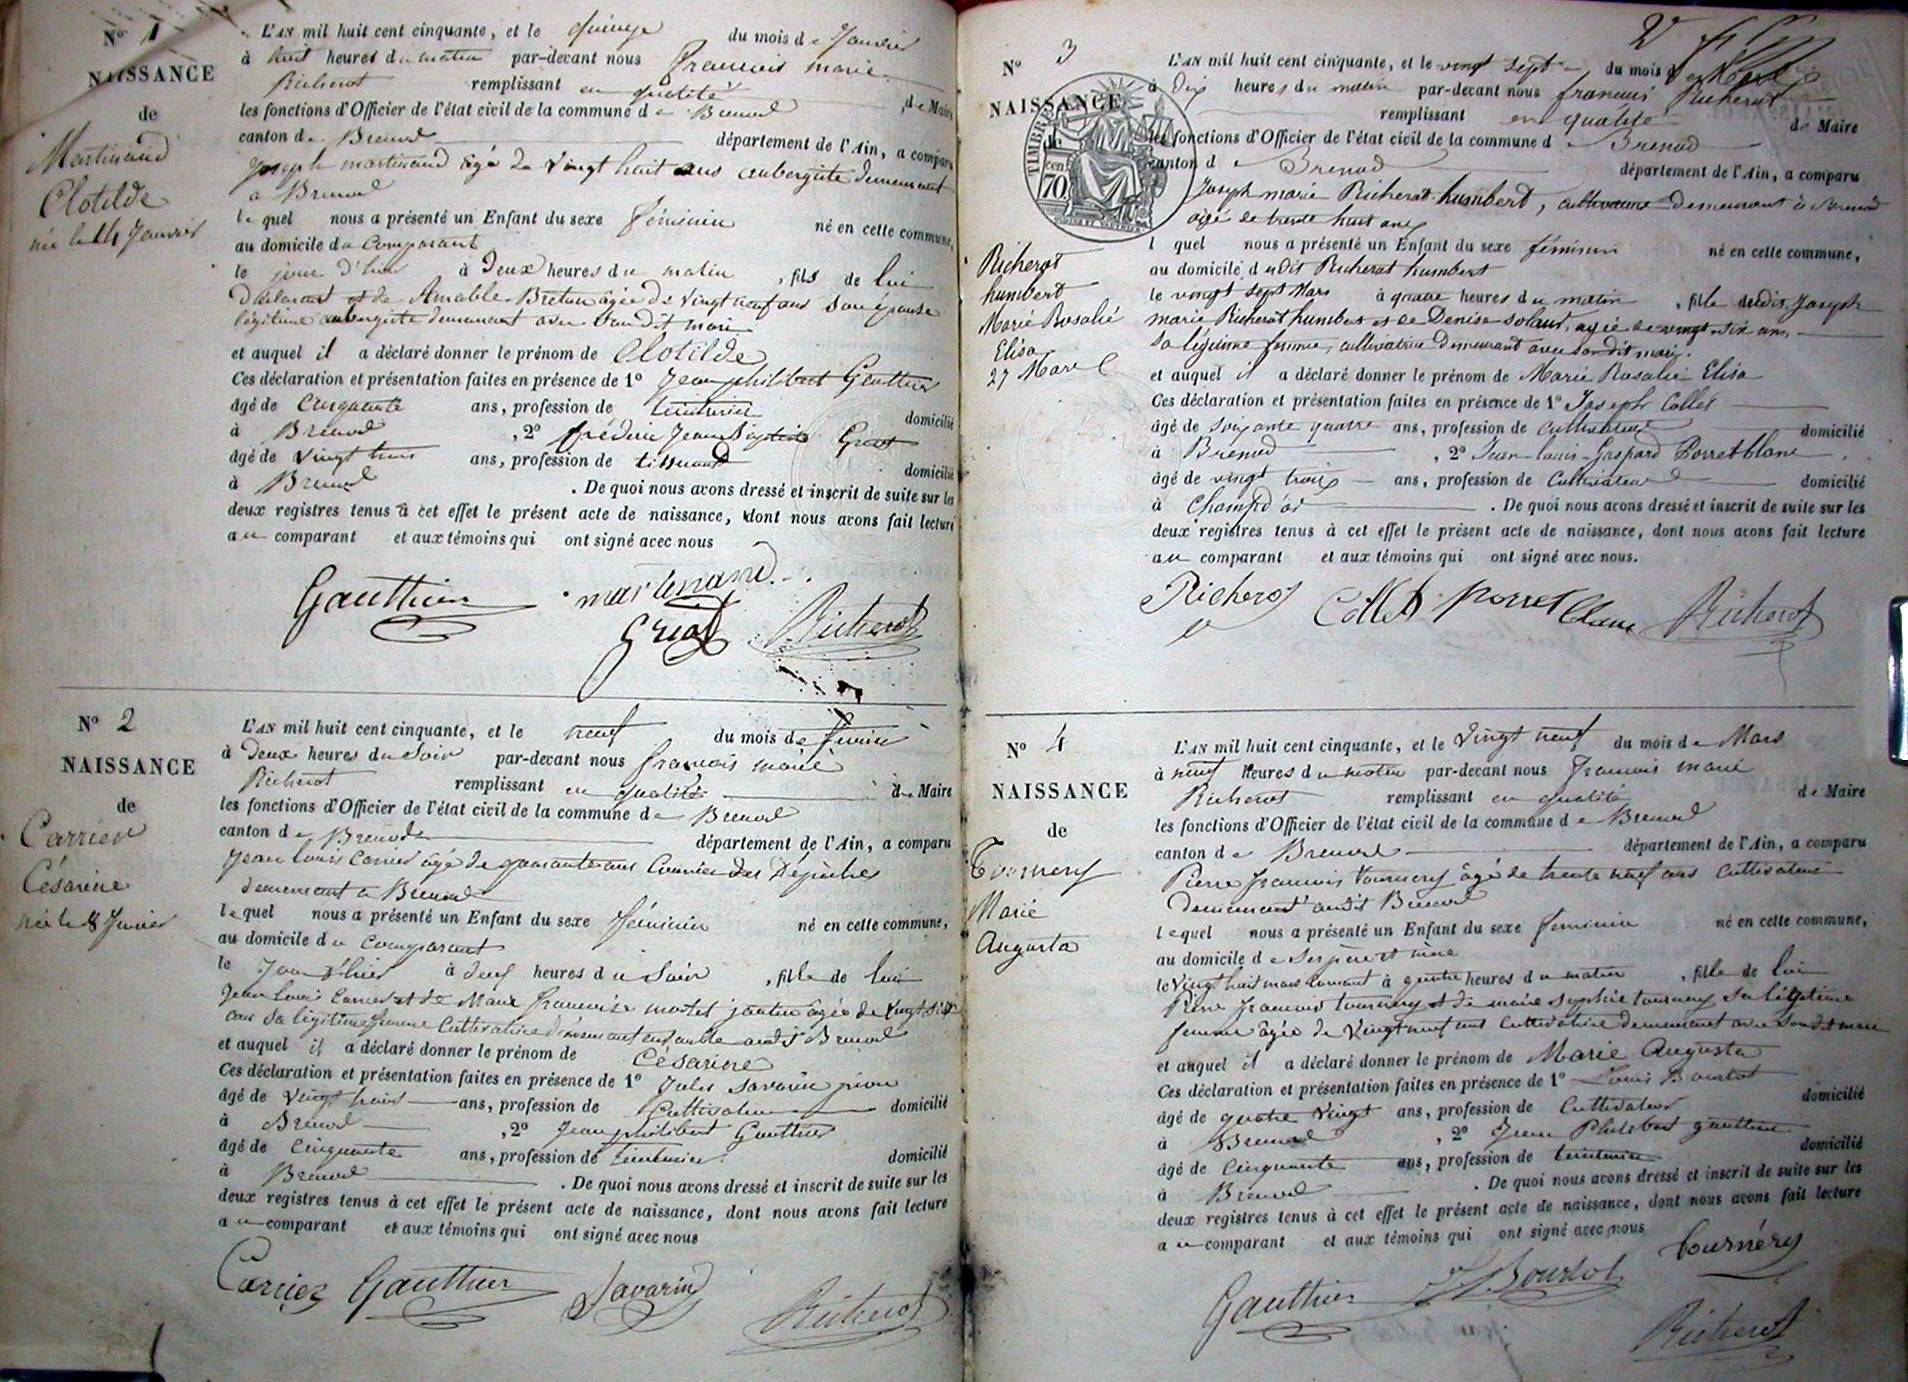 N° 1
NAISSANCE
de
Martinand
Clotilde
née le 14 Janvier
L'AN mil huit cent cinquante, et le quinze du mois de Janvier
à huit heures du matin par-devant nous francois marie
Richerot remplissant en qualité de Maire
les fonctions d'Officier de l'état civil de la commune de Brenod
canton de Brenod département de l'Ain, a comparu
Joseph martinand âgé de vingt huit ans aubergiste demeurant
à Brenod
lequel nous a présenté un Enfant du sexe féminin né en cette commune,
au domicile du Comparant
le jour d'hier à Deux heures du matin, fils de lui
Déclarant et de Amable Breton âgée de vingt neuf ans son épouse
légitime aubergiste demeurant avec son dit mari
et auquel il a déclaré donner le prénom de Clotilde
Ces déclaration et présentation faites en présence de 1° Jean philibert Gauthier
âgé de Cinquante ans, profession de teinturier domicilié
à Brenod, 2° frédéric Jean Baptiste Griot
âgé de vingt trois ans, profession de tisserand domicilié
à Brenod. De quoi nous avons dressé et inscrit de suite sur les
deux registres tenus à cet effet le présent acte de naissance, dont nous avons fait lecture
au comparant et aux témoins qui ont signé avec nous
Gauthier martinand Griot Richerot
N° 2
NAISSANCE
de
Carrier
Césarine
née le 8 fevrier
L'AN mil huit cent cinquante, et le neuf du mois de fevrier
à Deux heures du soir par-devant nous francois marie
Richerot remplissant en qualité de Maire
les fonctions d'Officier de l'état civil de la commune de Brenod
canton de Brenod département de l'Ain, a comparu
Jean louis Carrier âgé de quarante ans Courrier des Dépêches
demeurant à Brenod
lequel nous a présenté un Enfant du sexe féminin né en cette commune,
au domicile du Comparant
le Jour d'hier à heures du Soir, fille de lui
Jean louis Carrier et de Marie francoise âgée de vingt
ans sa légitime femme Cultivatrice demeurant ensemble audit Brenod
et auquel il a déclaré donner le prénom de Césarine
Ces déclaration et présentation faites en présence de 1° Jules Savarin
âgé de vingt ans, profession de Cultivateur domicilié
à Brenod, 2° Jean philibert Gauthier
âgé de Cinquante ans, profession de teinturier domicilié
à Brenod. De quoi nous avons dressé et inscrit de suite sur les
deux registres tenus à cet effet le présent acte de naissance, dont nous avons fait lecture
au comparant et aux témoins qui ont signé avec nous
Carrier Gauthier Savarin Richerot
N° 3
NAISSANCE
de
TIMBRE
70
Richerot
humbert
Marie Rosalie
Elisa
27 Mars
L'AN mil huit cent cinquante, et le vingt sept du mois de Mars
à dix heures du matin par-devant nous francois Richerot
remplissant en qualité de Maire
les fonctions d'Officier de l'état civil de la commune de Brenod
canton de Brenod département de l'Ain, a comparu
Joseph marie Richerot humbert, cultivateur demeurant à Brenod
âgé de trente huit ans
lquel nous a présenté un Enfant du sexe féminin né en cette commune,
au domicile dudit Richerot humbert
le vingt sept Mars à quatre heures du matin, fille dudit Joseph
marie Richerot humbert et de Denise Soland, agée de vingt six ans,
sa légitime femme, cultivatrice demeurant avec son dit mari.
et auquel il a déclaré donner le prénom de Marie Rosalie Elisa
Ces déclaration et présentation faites en présence de 1° Joseph Collet
âgé de soixante quatre ans, profession de Cultivateur domicilié
à Brenod, 2° Jean-louis-Gaspard Porret blanc
âgé de vingt trois ans, profession de Cultivateur domicilié
à Champd'or. De quoi nous avons dressé et inscrit de suite sur les
deux registres tenus à cet effet le présent acte de naissance, dont nous avons fait lecture
au comparant et aux témoins qui ont signé avec nous.
Richerot Collet porret blanc Richerot
N° 4
NAISSANCE
de
Tournery
Marie
Augusta
L'AN mil huit cent cinquante, et le vingt neuf du mois de Mars
à neuf heures du matin par-devant nous francois marie
Richerot remplissant en qualité de Maire
les fonctions d'Officier de l'état civil de la commune de Brenod
canton de Brenod département de l'Ain, a comparu
Pierre francois tournery âgé de trente neuf ans cultivateur
demeurant audit Brenod
lequel nous a présenté un Enfant du sexe feminin né en cette commune,
au domicile de ses père et mère
le vingt huit mars courant à quatre heures du matin, fille de lui
Pierre francois tournery et de marie sophie tournery sa légitime
femme âgée de vingt neuf ans cultivatrice demeurant avec son dit mari
et auquel il a déclaré donner le prénom de Marie Augusta
Ces déclaration et présentation faites en présence de 1° Louis Bourlot
âgé de quatre vingt ans, profession de Cultivateur domicilié
à Brenod, 2° Jean Philibert gauthier
âgé de Cinquante ans, profession de teinturier domicilié
à Brenod. De quoi nous avons dressé et inscrit de suite sur les
deux registres tenus à cet effet le présent acte de naissance, dont nous avons fait lecture
au comparant et aux témoins qui ont signé avec nous
Gauthier Bourlot tournéry
Richerot